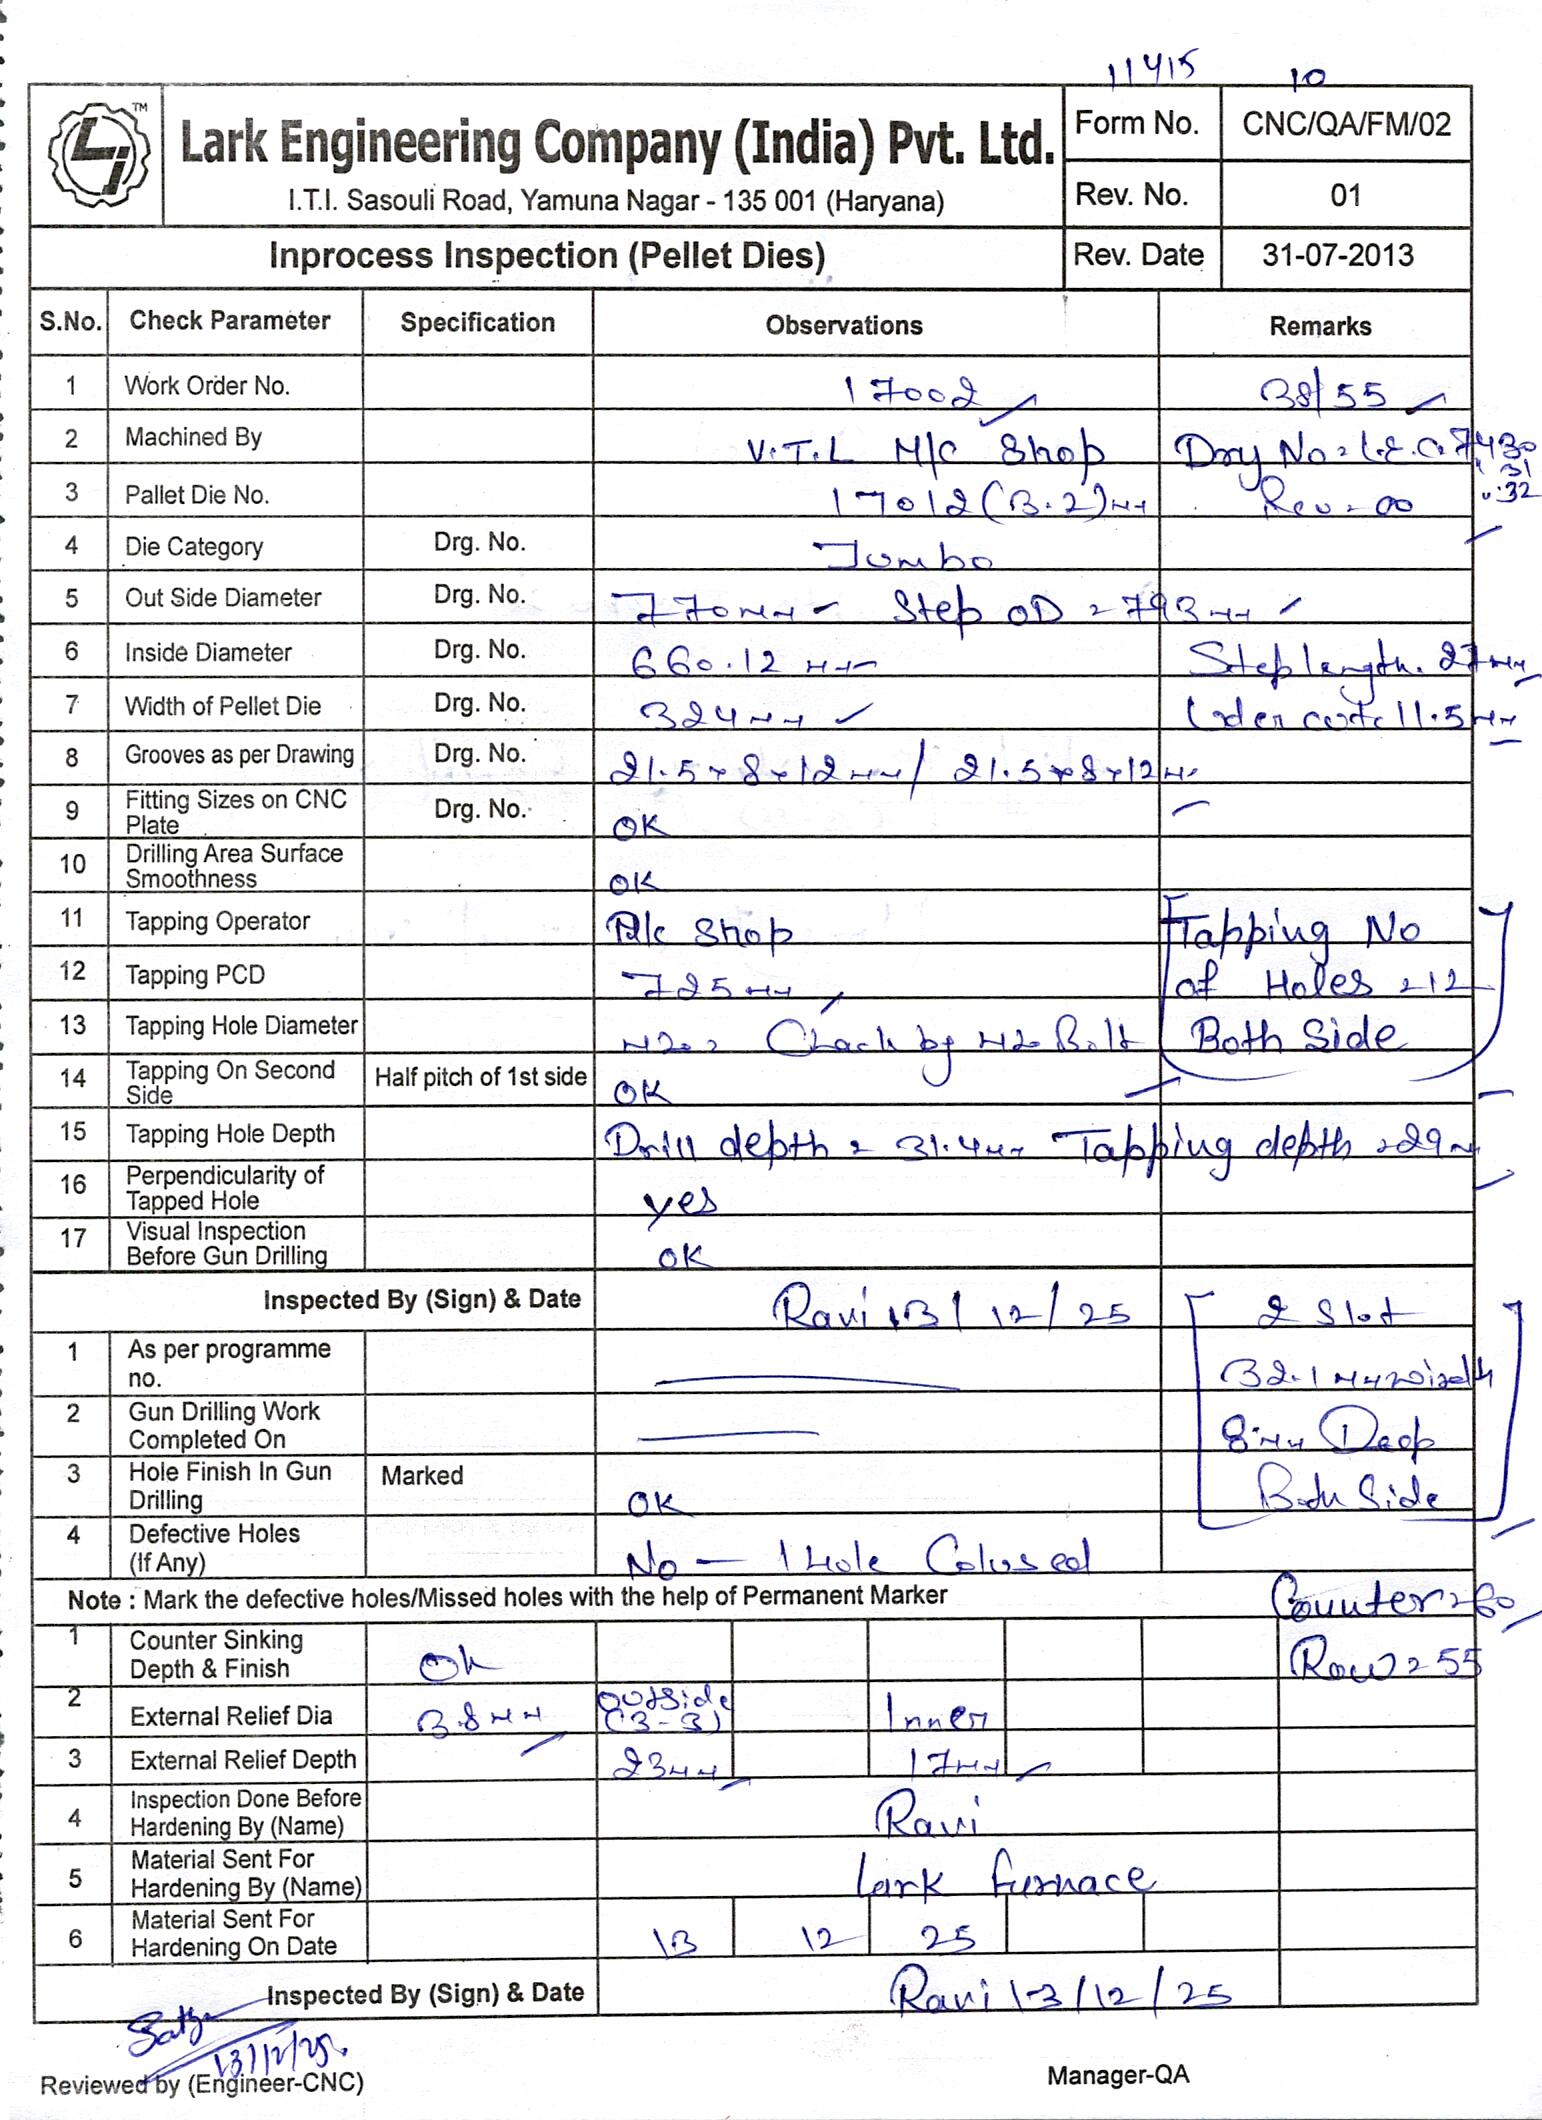 11415 10
TM
Lark Engineering Company (India) Pvt. Ltd.
I.T.I. Sasouli Road, Yamuna Nagar - 135 001 (Haryana)
Form No. CNC/QA/FM/02
Rev. No. 01
Inprocess Inspection (Pellet Dies) Rev. Date 31-07-2013
S.No. Check Parameter Specification Observations Remarks
1 Work Order No. 17002 38/55
2 Machined By V.T.L M/C Shop Drg No = L.E.C. 7430
31
3 Pallet Die No. 17012 (3.2)mm Rev = 00 32
4 Die Category Drg. No. Jumbo
5 Out Side Diameter Drg. No. 770mm Step OD = 793mm
6 Inside Diameter Drg. No. 660.12 mm Step length. 27mm
7 Width of Pellet Die Drg. No. 324mm 11.5mm
8 Grooves as per Drawing Drg. No. 21.5x8x12mm/ 21.5x8x12m
9 Fitting Sizes on CNC Plate Drg. No. OK
10 Drilling Area Surface Smoothness OK
11 Tapping Operator Shop Tapping No
12 Tapping PCD 725mm of Holes = 12
13 Tapping Hole Diameter M20 = Chack by M20 Bolt Both Side
14 Tapping On Second Side Half pitch of 1st side OK
15 Tapping Hole Depth Drill depth = 31.4mm Tapping depth = 29m
16 Perpendicularity of Tapped Hole yes
17 Visual Inspection Before Gun Drilling OK
Inspected By (Sign) & Date Ravi 13/12/25 2 Slot
1 As per programme no. 32.1mm
2 Gun Drilling Work Completed On 8mm Deep
3 Hole Finish In Gun Drilling Marked OK Both Side
4 Defective Holes (If Any) No - 1 Hole Colused
Note : Mark the defective holes/Missed holes with the help of Permanent Marker Counter = 60
1 Counter Sinking Depth & Finish Ok Row = 55
2 External Relief Dia 3.8mm outside (3-3) Inner
3 External Relief Depth 23mm 17mm
4 Inspection Done Before Hardening By (Name) Ravi
5 Material Sent For Hardening By (Name) Lark furnace
6 Material Sent For Hardening On Date 13 12 25
Inspected By (Sign) & Date Ravi 13/12/25
13/12/25
Reviewed by (Engineer-CNC) Manager-QA